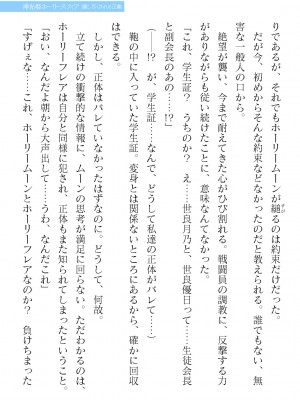 りであるが、それでもホーリームーンが縋るのは約束だけだった。
だが今、初めからそんな約束などなかったのだと教えられる。誰でもない、無
害な一般人の口から。
絶望が襲い、今まで耐えてきた心がひび割れる。戦闘員の調教に、反撃する力
がありながらも従い続けたことに、意味なんてなかった。
「これ、学生証？　うちのか？　え……世良月乃と、世良優日って……生徒会長
と副会長のあの……!?」
（――!?　が、学生証……なんで、どうして私達の正体がバレて……）
鞄の中に入っていた学生証。変身とは関係ないところにあるから、確かに回収
はできる。
しかし、正体はバレていなかったはずなのに。どうして、何故。
立て続けの衝撃的な情報に、ムーンの思考が満足に回らない。ただわかるのは、
ホーリーフレアは自分と同様に犯され、正体もまた知られてしまったということ。
「おい、なんだよ朝から大声出して……うわっ、なんだこれ」
「すげぇな……これ　ホーリームーンとホーリーフレアなのか？　負けちまった